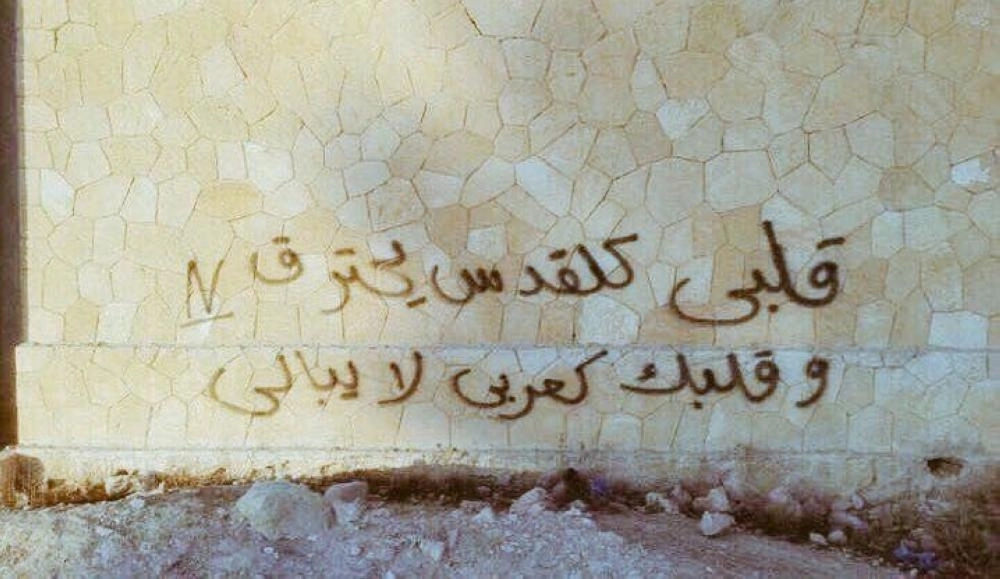 قلبي كلقدس يحترق N
و قلبك كعربي لا يبالي